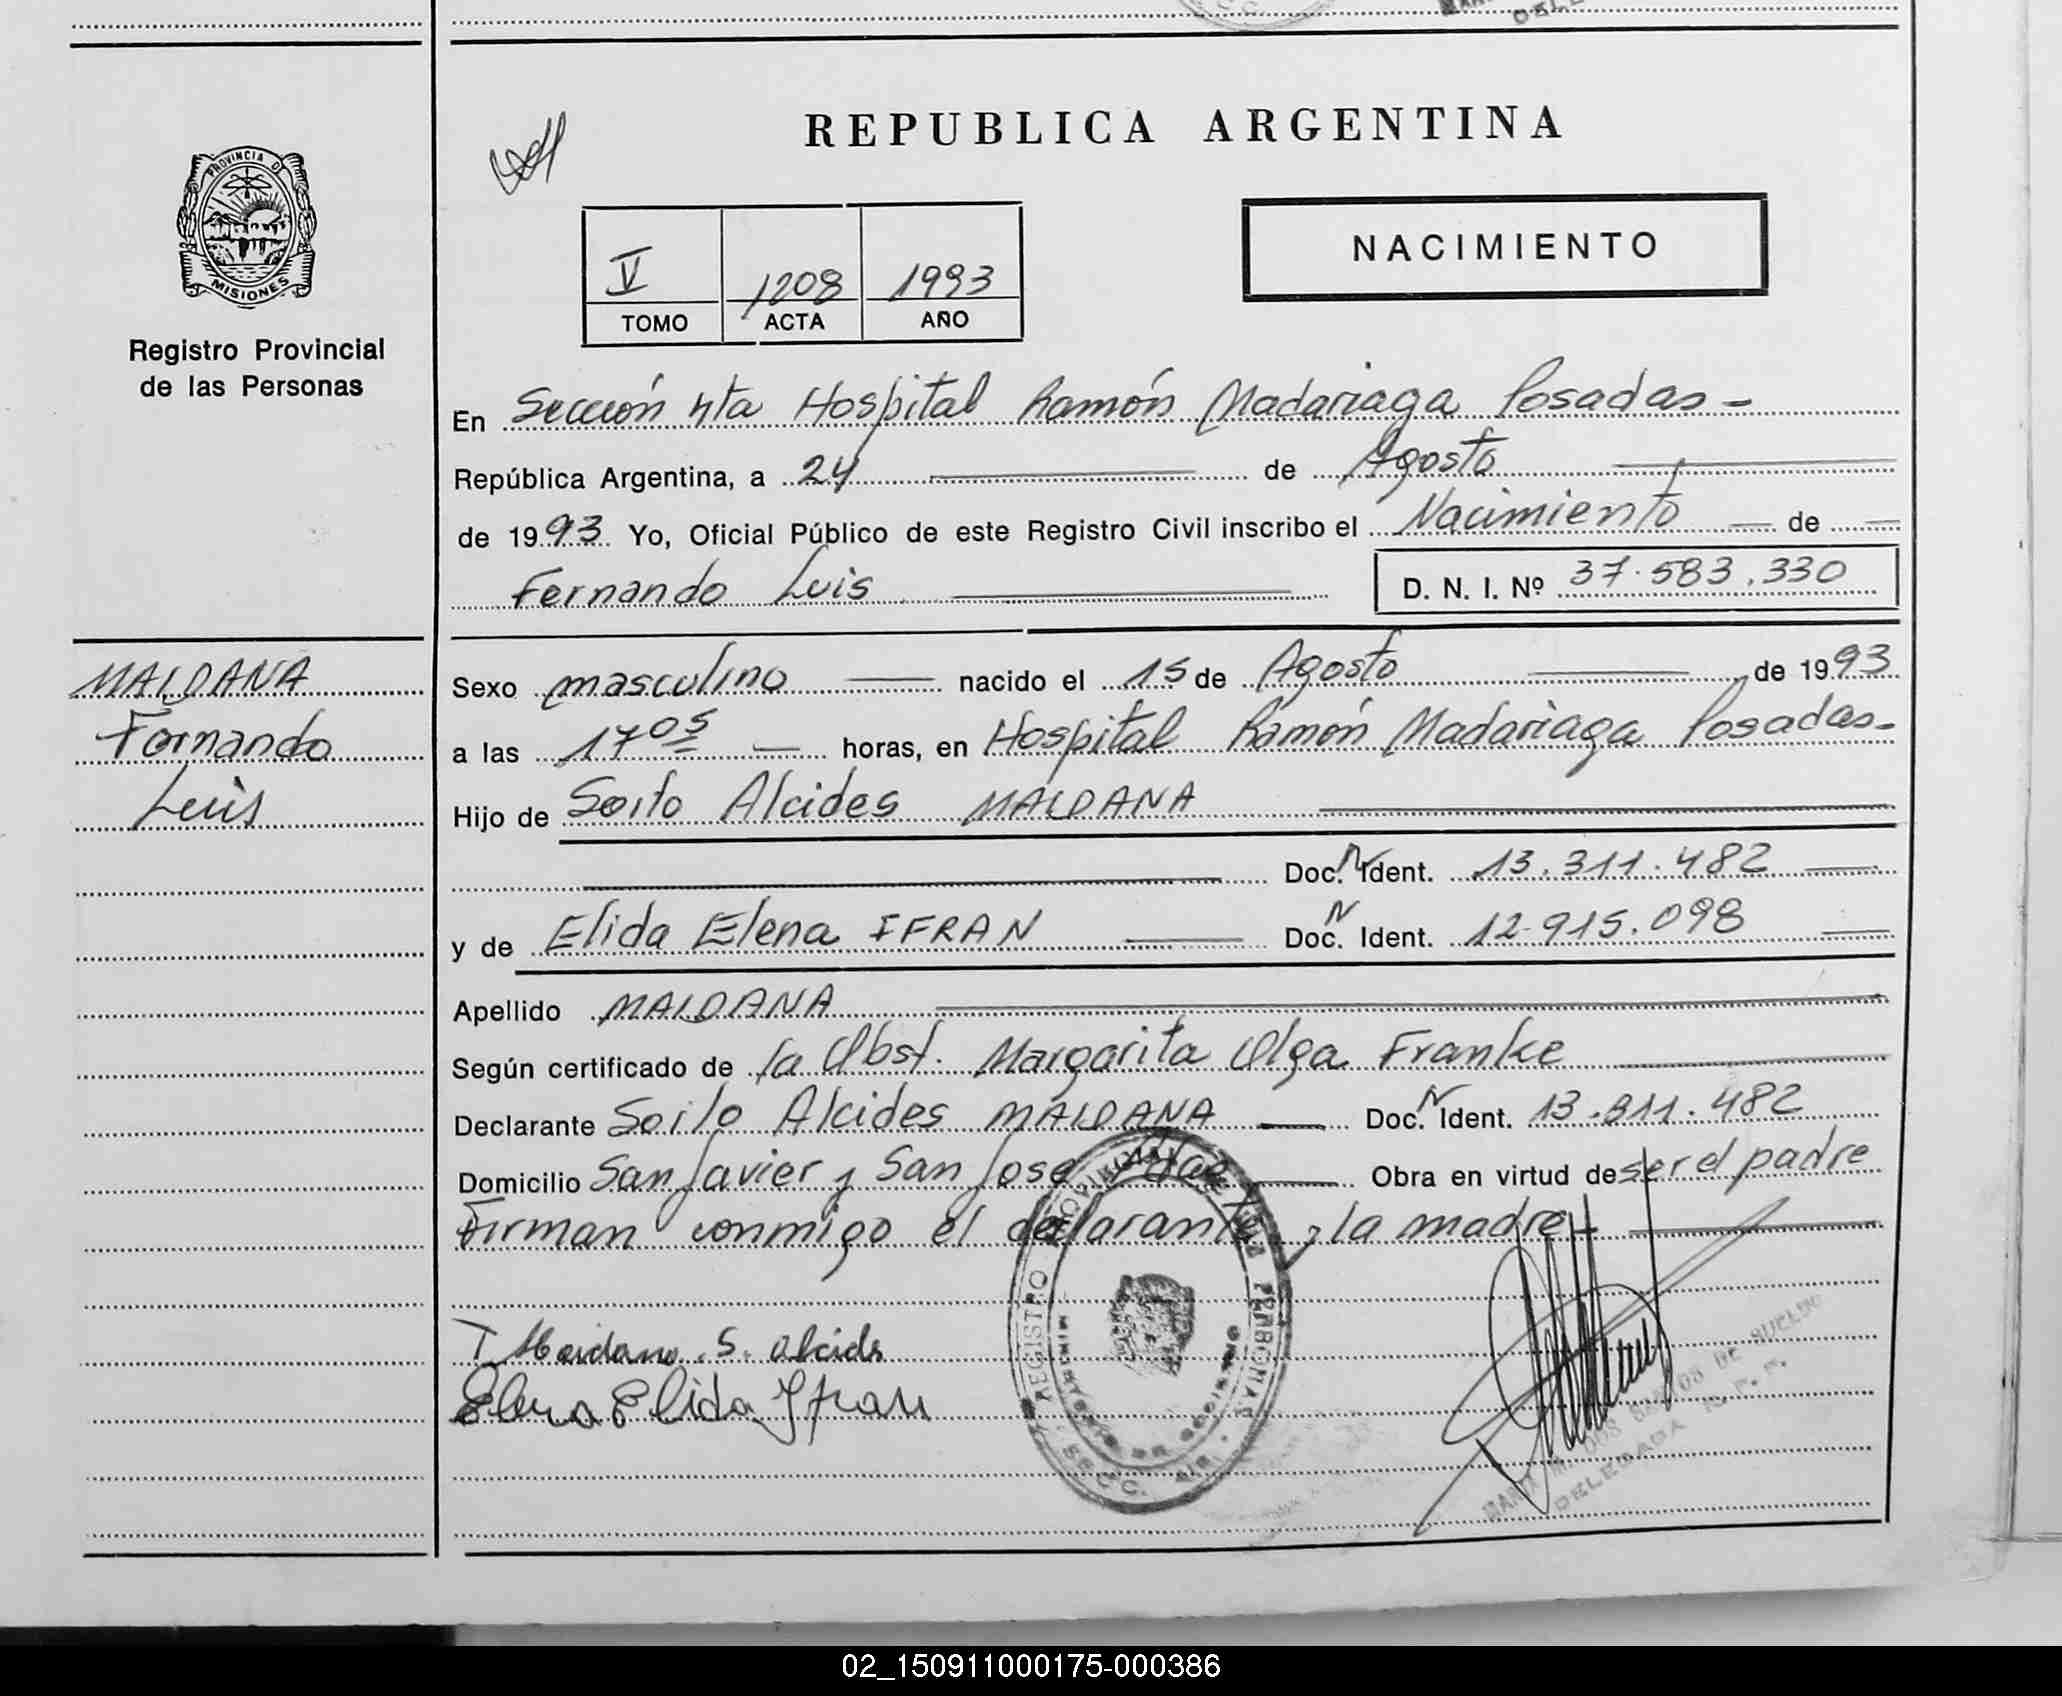 REPUBLICA ARGENTINA
PROVINCIA DE
MISIONES
Registro Provincial
de las Personas
NACIMIENTO
V 1208 1993
TOMO ACTA AÑO
En Sección 4ta Hospital Ramón Madariaga Posadas -
República Argentina, a 24 de Agosto
de 1993 Yo, Oficial Público de este Registro Civil inscribo el Nacimiento de
Fernando Luis D. N. I. Nº 37.583.330
MALDANA
Fernando
Luis
Sexo masculino nacido el 15 de Agosto de 1993
a las 17 05 horas, en Hospital Ramón Madariaga Posadas-
Hijo de Soilo Alcides MALDANA
Doc. N Ident. 13.311.482
y de Elida Elena IFRAN Doc. N Ident. 12.915.098
Apellido MALDANA
Según certificado de la Obst. Margarita Olga Franke
Declarante Soilo Alcides MALDANA Doc. N Ident. 13.311.482
Domicilio San Javier y San Jose Pdas Obra en virtud de ser el padre
Firman conmigo el declarante y la madre
S. Alcids
Elena Elida Ifran
REGISTRO PROVINCIAL DE LAS PERSONAS
SECC.
DE SUELDO
DELEGADA R. P. P.
02_150911000175-000386